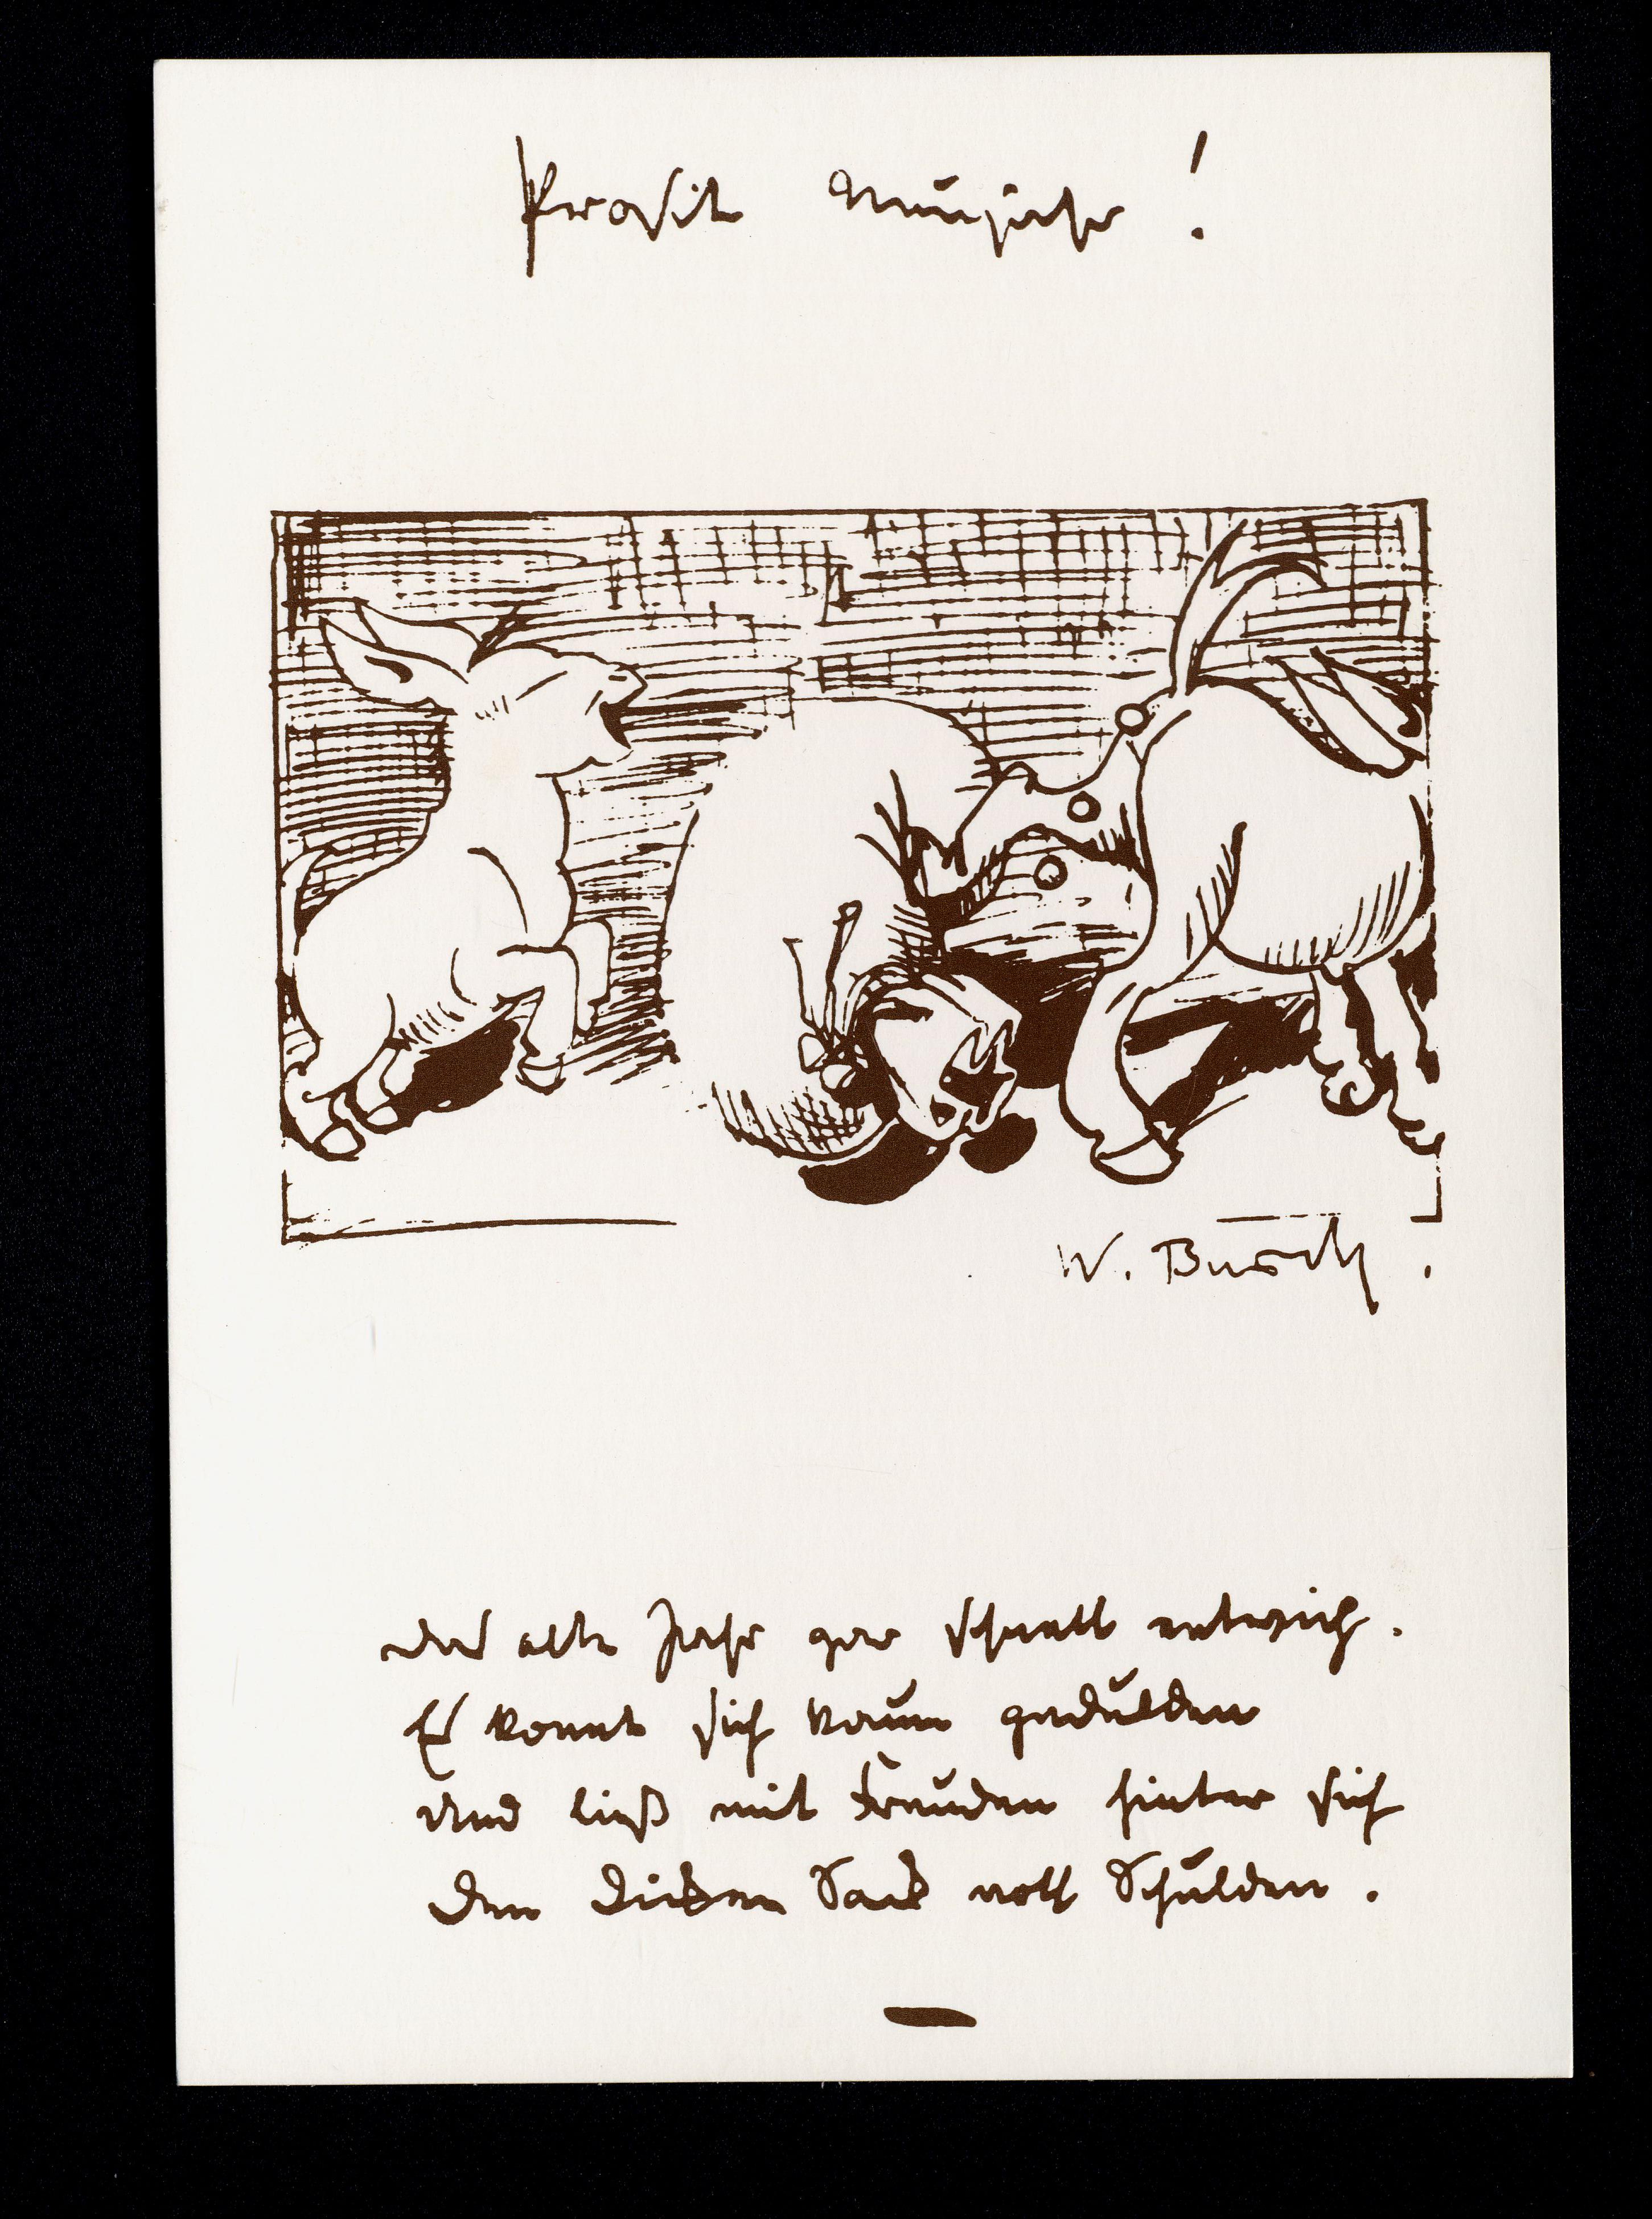 Prosit Neujahr!
W. Busch.
Das alte Jahr gar schnell entwich.
Es konnt sich kaum gedulden
Und ließ mit Freuden hinter sich
Den dicken Sack voll Schulden.